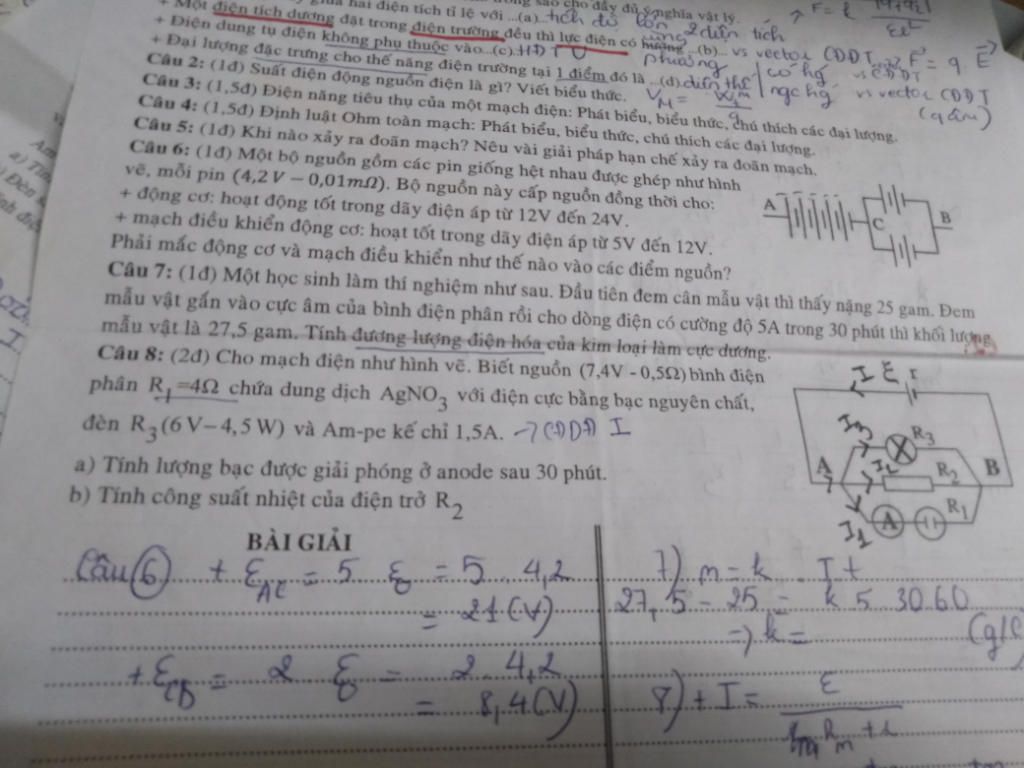 giữa hai điện tích tỉ lệ với ...(a).. tích độ lớn 2 điện tích
+ Một điện tích dương đặt trong điện trường đều thì lực điện có hướng ...(b)... vs vector CĐĐT F = q. E
+ Điện dung tụ điện không phụ thuộc vào...(c) HĐT U
+ Đại lượng đặc trưng cho thế năng điện trường tại 1 điểm đó là ...(d) điện thế
Câu 2: (1đ) Suất điện động nguồn điện là gì? Viết biểu thức.
Câu 3: (1,5đ) Điện năng tiêu thụ của một mạch điện: Phát biểu, biểu thức, chú thích các đại lượng.
Câu 4: (1,5đ) Định luật Ohm toàn mạch: Phát biểu, biểu thức, chú thích các đại lượng.
Câu 5: (1đ) Khi nào xảy ra đoãn mạch? Nêu vài giải pháp hạn chế xảy ra đoãn mạch.
Câu 6: (1đ) Một bộ nguồn gồm các pin giống hệt nhau được ghép như hình
vẽ, mỗi pin (4,2V – 0,01mΩ). Bộ nguồn này cấp nguồn đồng thời cho:
+ động cơ: hoạt động tốt trong dãy điện áp từ 12V đến 24V.
+ mạch điều khiển động cơ: hoạt tốt trong dãy điện áp từ 5V đến 12V.
Phải mắc động cơ và mạch điều khiển như thế nào vào các điểm nguồn?
A C B
Câu 7: (1đ) Một học sinh làm thí nghiệm như sau. Đầu tiên đem cân mẫu vật thì thấy nặng 25 gam. Đem
mẫu vật gắn vào cực âm của bình điện phân rồi cho dòng điện có cường độ 5A trong 30 phút thì khối lượng
mẫu vật là 27,5 gam. Tính đương lượng điện hóa của kim loại làm cực dương.
Câu 8: (2đ) Cho mạch điện như hình vẽ. Biết nguồn (7,4V - 0,5Ω) bình điện
phân R1=4Ω chứa dung dịch AgNO3 với điện cực bằng bạc nguyên chất,
đèn R3(6V – 4,5W) và Am-pe kế chỉ 1,5A. → CĐDĐ I
a) Tính lượng bạc được giải phóng ở anode sau 30 phút.
b) Tính công suất nhiệt của điện trở R2
I ξ r
I3 R3
A I2 R2 B
I1 A R1
BÀI GIẢI
Câu 6 + ξAC = 5 ξ = 5 . 4,2
= 21 (V)
+ ξCB = 2 ξ = 2 . 4,2
= 8,4 (V)
7) m = k . I t
27,5 - 25 = k 5 . 30.60
=> k = (g/C)
8) + I = ξ
Rm + r